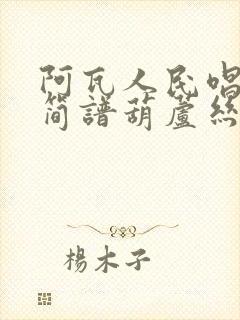 阿瓦人民唱
简譜葫蘆絲
楊木子